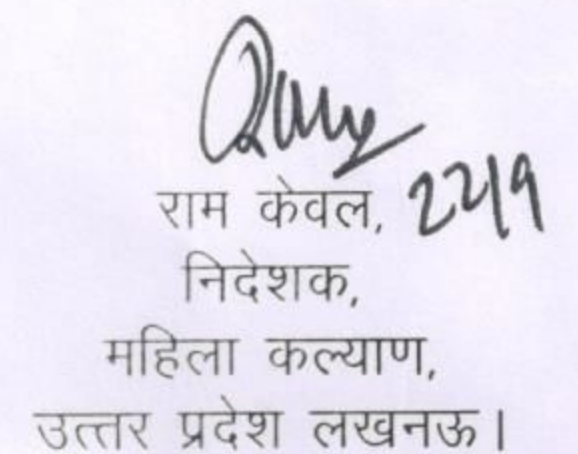 राम केवल, 22/9
निदेशक,
महिला कल्याण,
उत्तर प्रदेश लखनऊ।